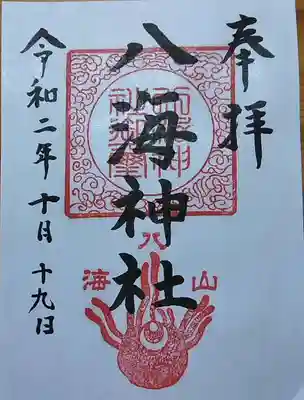 奉拝
八海神社
八
海山
令和二年十月十九日